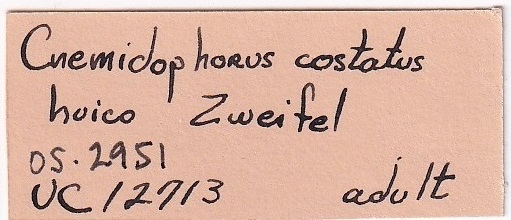 Cnemidophorus costatus
huico Zweifel
OS.2951
UC12713 adult